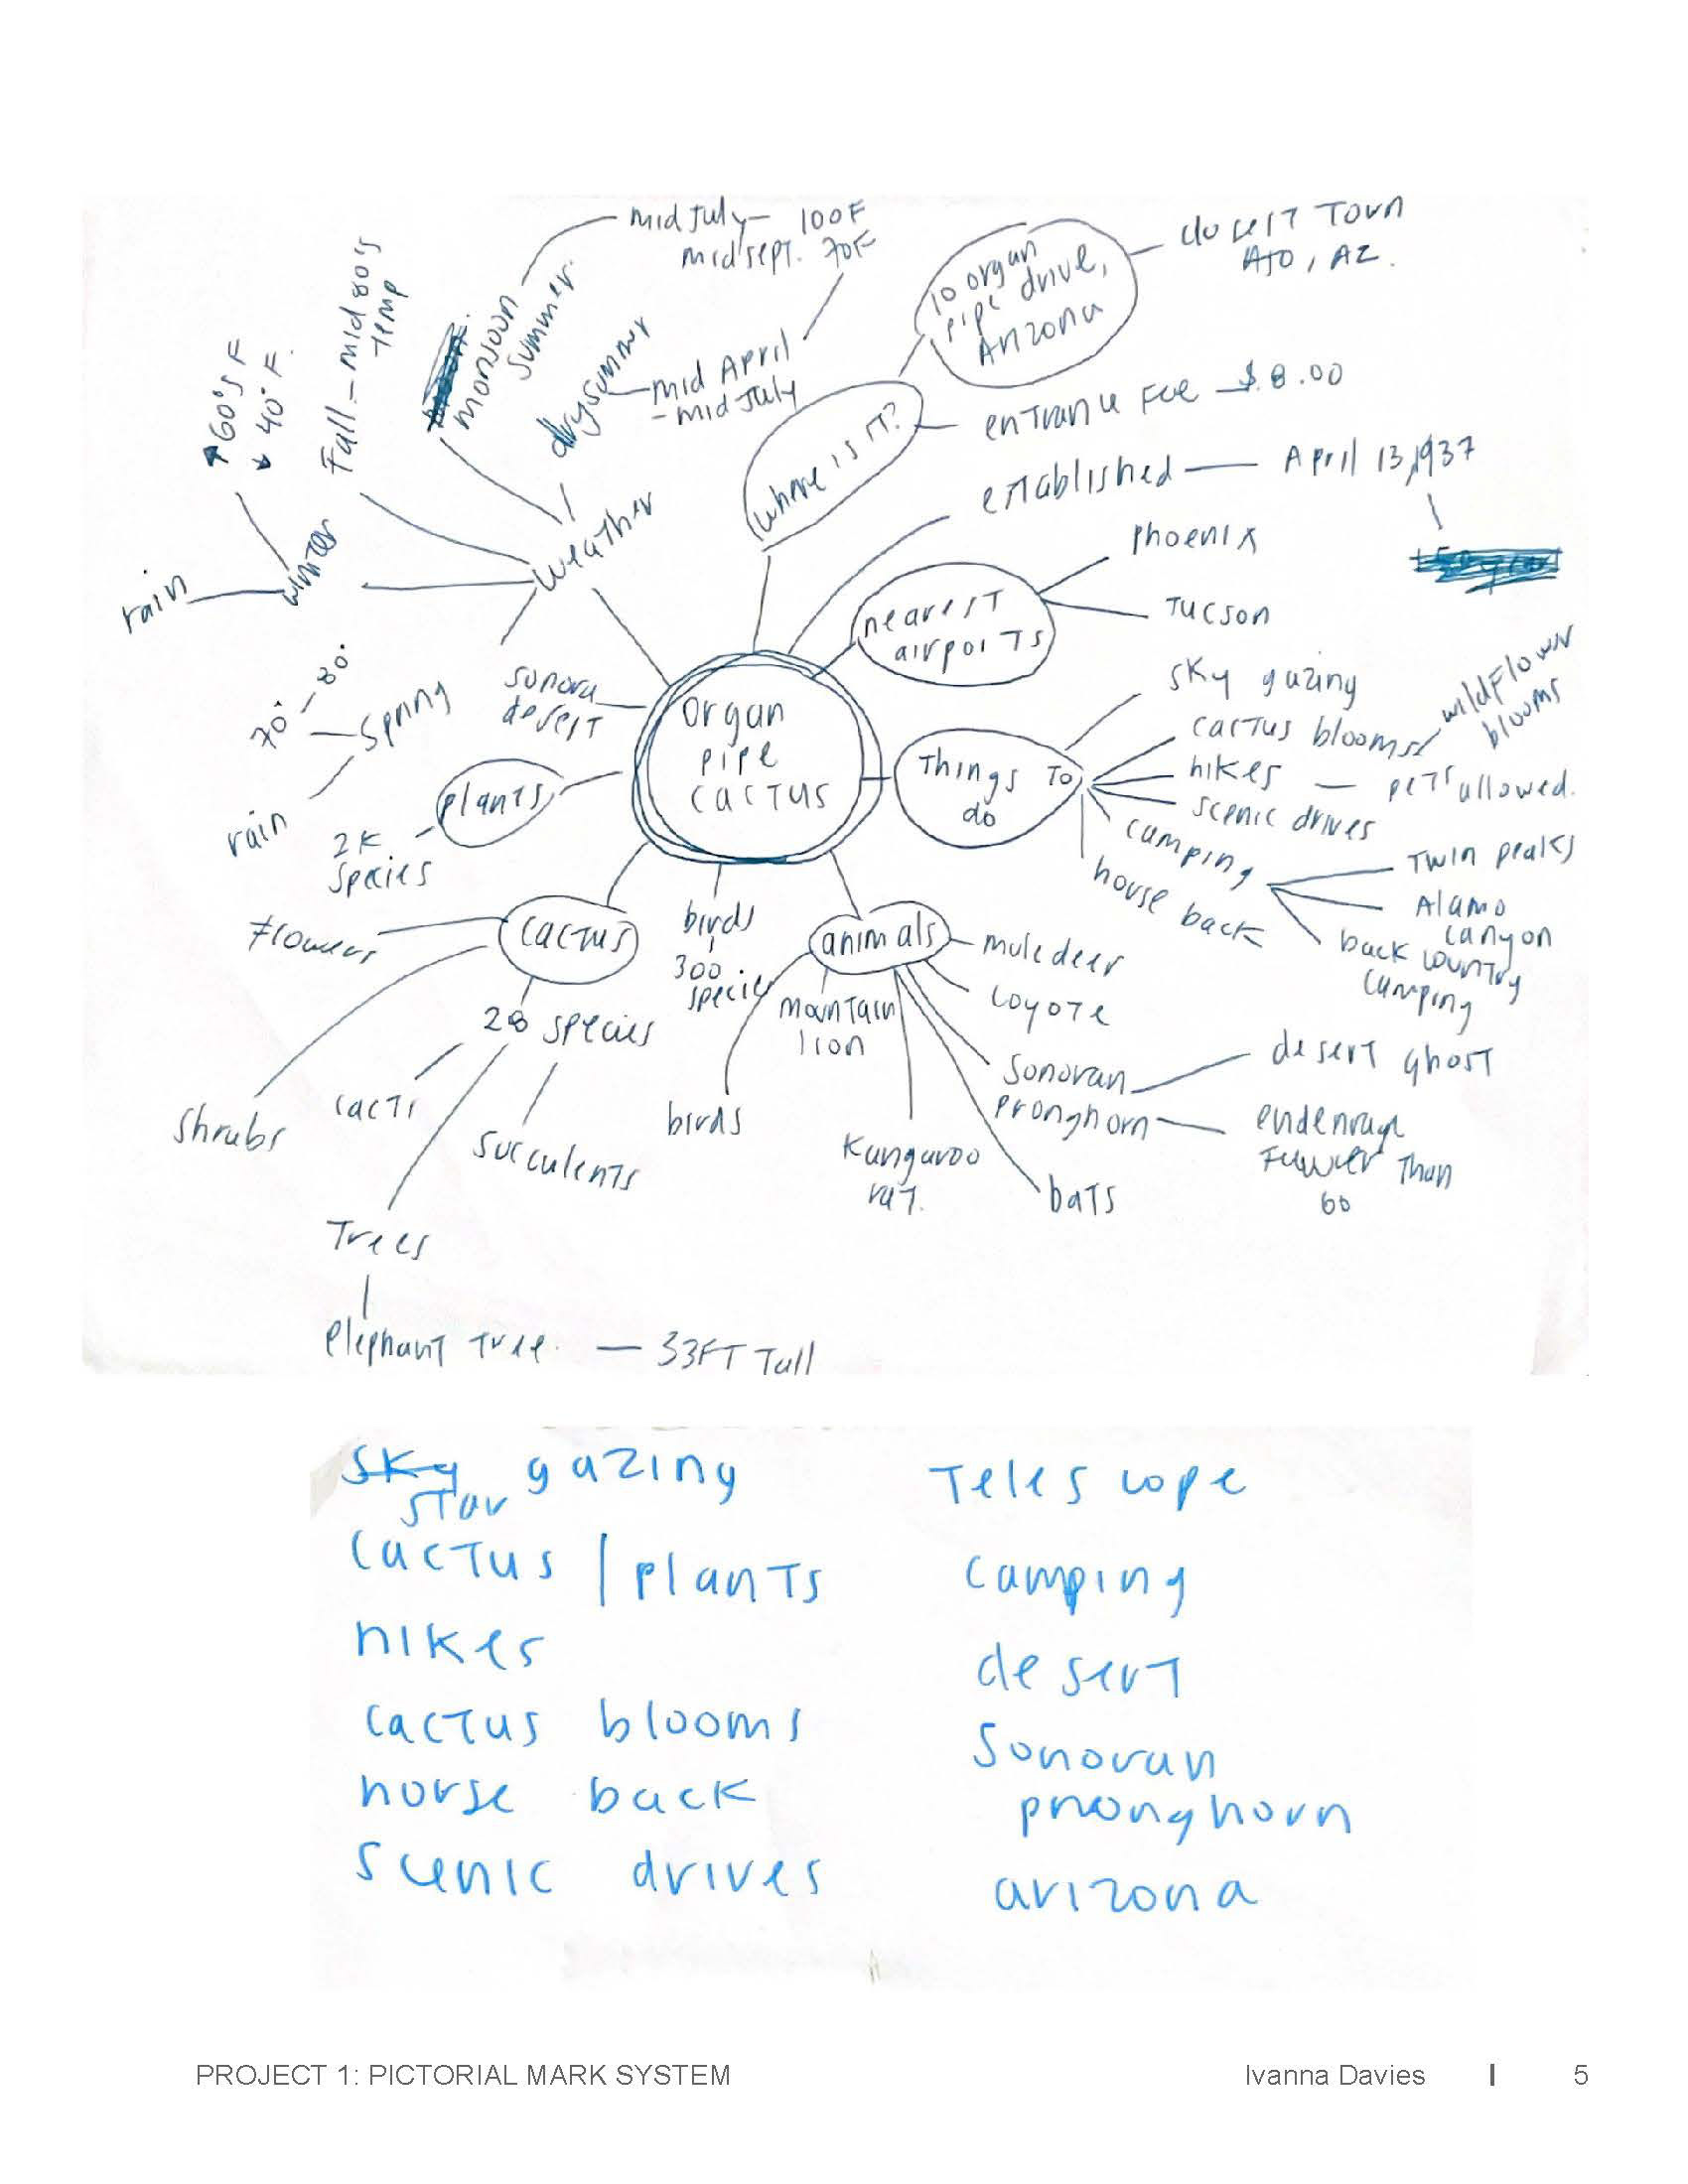 mid July – 100F
mid sept. 70F
monsoon
summer
dry summer
mid April
– mid July
Fall – mid 80's
Temp
60's F
40° F.
winter
rain
weather
Spring
70° – 80°
rain
where is it?
10 organ
pipe drive,
Arizona
closest Town
AJO, AZ.
entrance Fee – $.8.00
established — April 13, 1937
nearest
airports
Phoenix
Tucson
sonora
desert
organ
pipe
cactus
Things To
do
sky gazing
cactus blooms
wildflower
blooms
hikes — pets allowed.
scenic drives
camping
Twin peaks
Alamo
canyon
back country
camping
horse back
plants
2K
species
cactus
Flowers
shrubs
28 species
cacti
succulents
Trees
elephant Tree. — 33FT Tall
birds
300
species
animals
mule deer
coyote
mountain
lion
birds
kangaroo
rat.
bats
Sonoran
pronghorn
desert ghost
Fewer Than
60
sky gazing
star
cactus / plants
hikes
cactus blooms
horse back
scenic drives
Telescope
camping
desert
Sonoran
pronghorn
arizona
PROJECT 1: PICTORIAL MARK SYSTEM
Ivanna Davies | 5